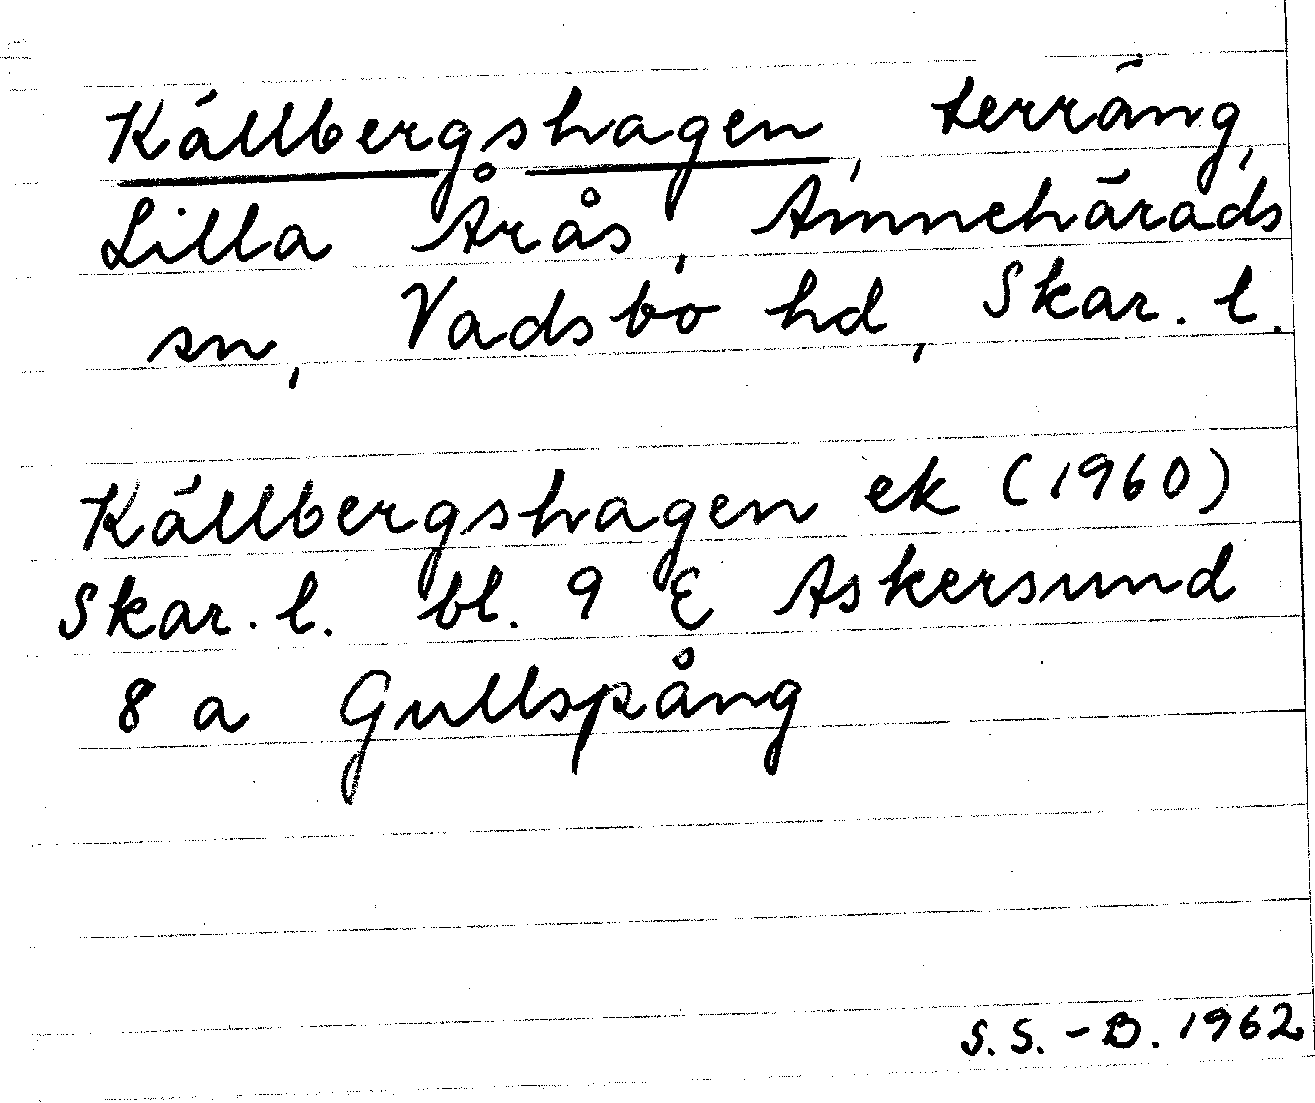 Källbergshagen, terräng,
Lilla Årås, Amnehärads
sn, Vadsbo hd, Skar. l.
Källbergshagen ek (1960)
Skar. l. bl. 9 E Askersund
8 a Gullspång
S. S. - B. 1962